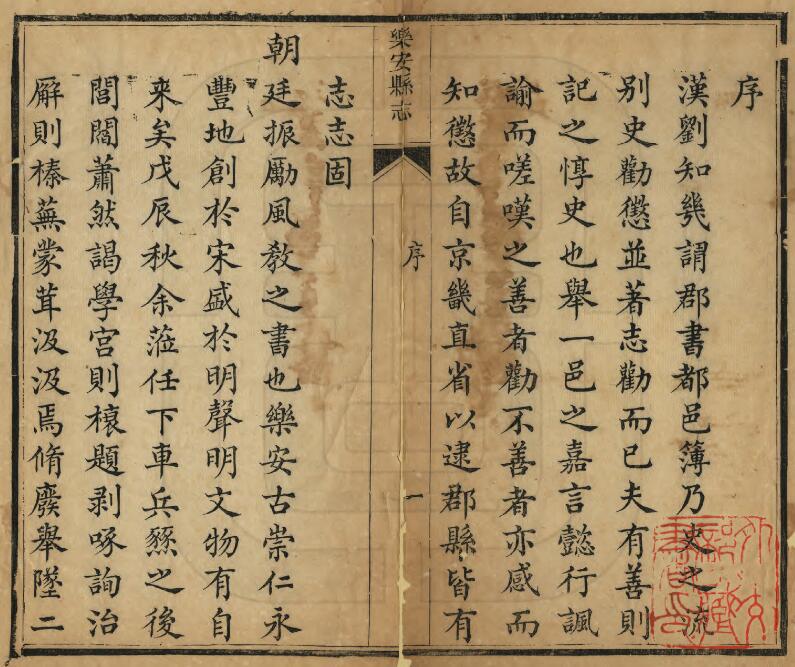 序
漢劉知幾謂郡書都邑簿乃史之流
别史勸懲並著志勸而已夫有善則
記之惇史也舉一邑之嘉言懿行諷
諭而嗟嘆之善者勸不善者亦感而
知懲故自京畿直省以逮郡縣皆有
樂安縣志
序
一
志志固
朝廷振勵風教之書也樂安古崇仁永
豐地創於宋盛於明聲明文物有自
來矣戊辰秋余蒞任下車兵燹之後
閭閻蕭然謁學宮則榱題剥啄詢治
廨則榛蕪蒙茸汲汲焉脩廢舉墜二